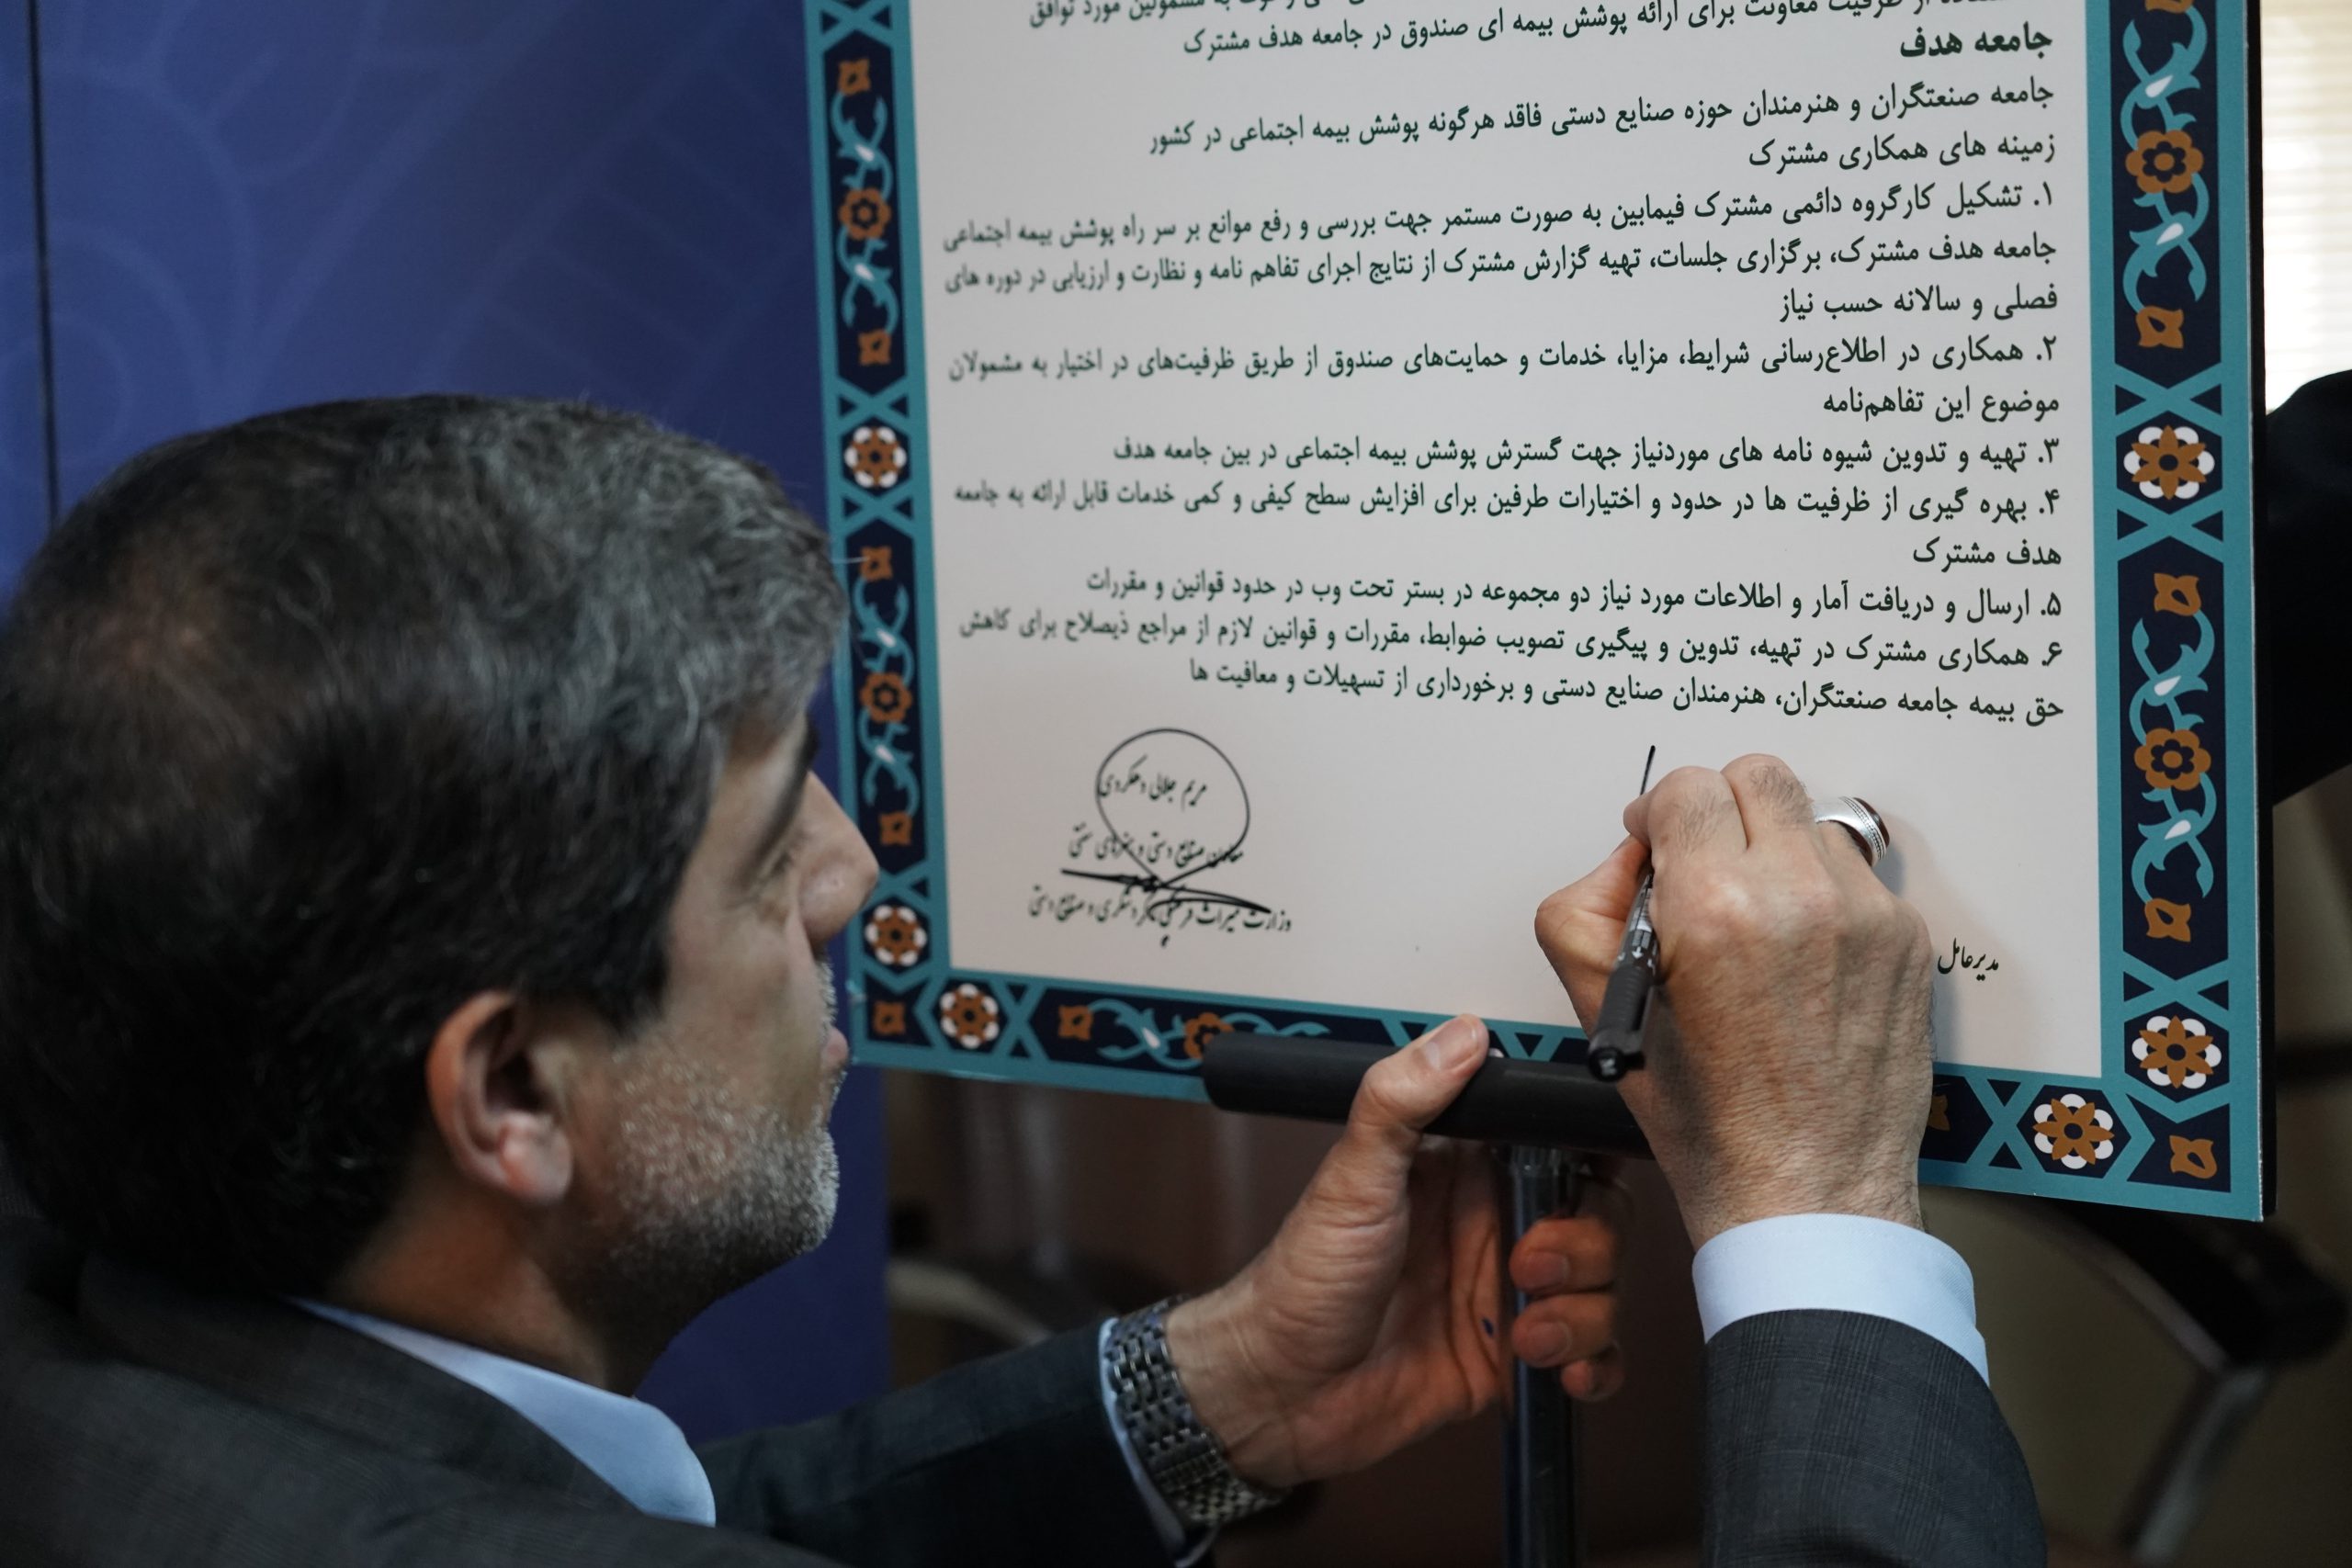 از ظرفیت معاونت برای ارائه پوشش بیمه ای صندوق در جامعه هدف مشترک
به مشمولین مورد توافق
جامعه هدف
جامعه صنعتگران و هنرمندان حوزه صنایع دستی فاقد هرگونه پوشش بیمه اجتماعی در کشور
زمینه های همکاری مشترک
۱. تشکیل کارگروه دائمی مشترک فیمابین به صورت مستمر جهت بررسی و رفع موانع بر سر راه پوشش بیمه اجتماعی
جامعه هدف مشترک، برگزاری جلسات، تهیه گزارش مشترک از نتایج اجرای تفاهم نامه و نظارت و ارزیابی در دوره های
فصلی و سالانه حسب نیاز
۲. همکاری در اطلاع‌رسانی شرایط، مزایا، خدمات و حمایت‌های صندوق از طریق ظرفیت‌های در اختیار به مشمولان
موضوع این تفاهم‌نامه
۳. تهیه و تدوین شیوه نامه های موردنیاز جهت گسترش پوشش بیمه اجتماعی در بین جامعه هدف
۴. بهره گیری از ظرفیت ها در حدود و اختیارات طرفین برای افزایش سطح کیفی و کمی خدمات قابل ارائه به جامعه
هدف مشترک
۵. ارسال و دریافت آمار و اطلاعات مورد نیاز دو مجموعه در بستر تحت وب در حدود قوانین و مقررات
۶. همکاری مشترک در تهیه، تدوین و پیگیری تصویب ضوابط، مقررات و قوانین لازم از مراجع ذیصلاح برای کاهش
حق بیمه جامعه صنعتگران، هنرمندان صنایع دستی و برخورداری از تسهیلات و معافیت ها
مدیرعامل
مریم جلالی دهکردی
معاون صنایع دستی و هنرهای سنتی
وزارت میراث فرهنگی گردشگری و صنایع دستی